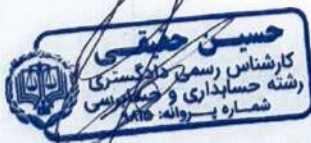 حسین حقیقی
کارشناس رسمی دادگستری
رشته حسابداری و حسابرسی
شماره پروانه: